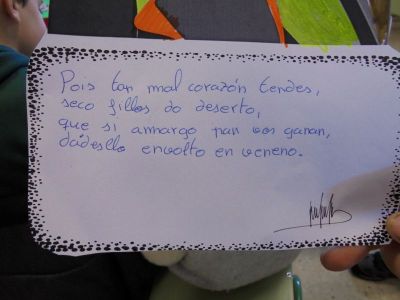 Pois tan mal corazón tendes,
seco fillos do deserto,
que si amargo pan vos ganan,
dádesllo envolto en veneno.